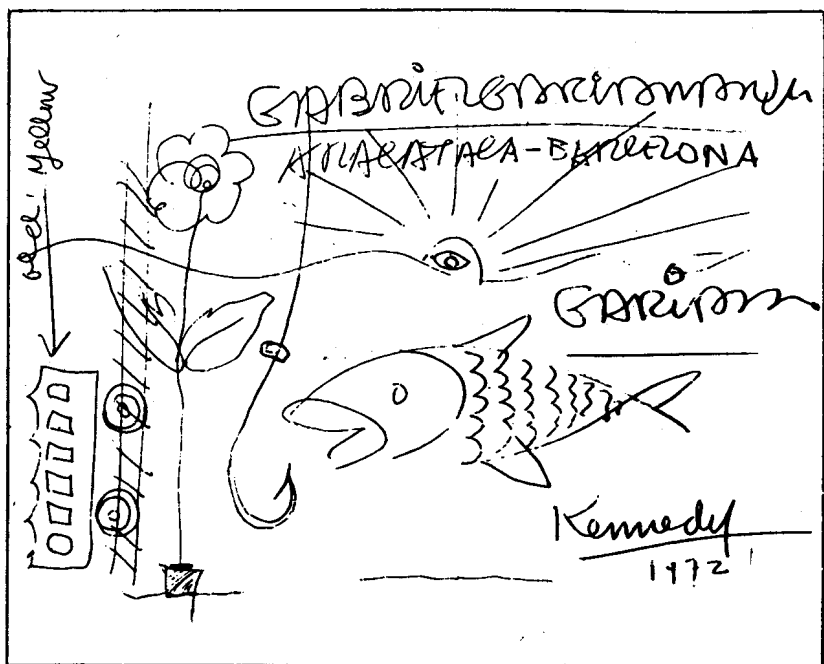 Yellow
GABRiELGARCiAMARQUEZ
ARACATACA-BARCELONA
Kennedy
1972